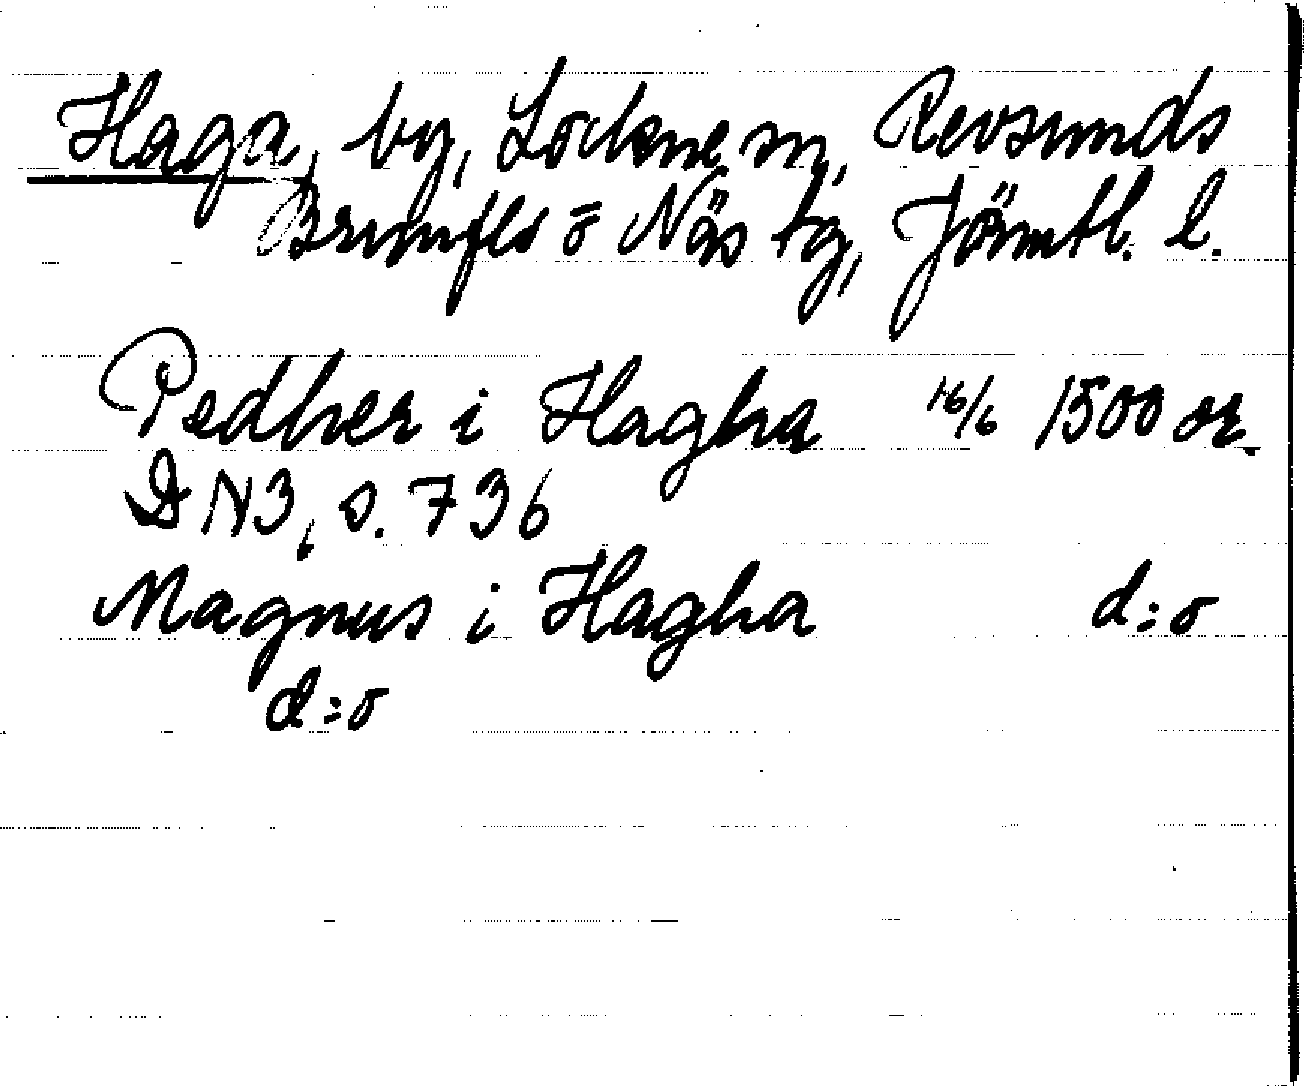 Haga, by, Lockne sn, Revsunds
Brunflo o Näs tg, Jämtl. l.
Pedher i Hagha 16/6 1500 or.
DN3, s. 736
Magnus i Hagha d:o
d:o